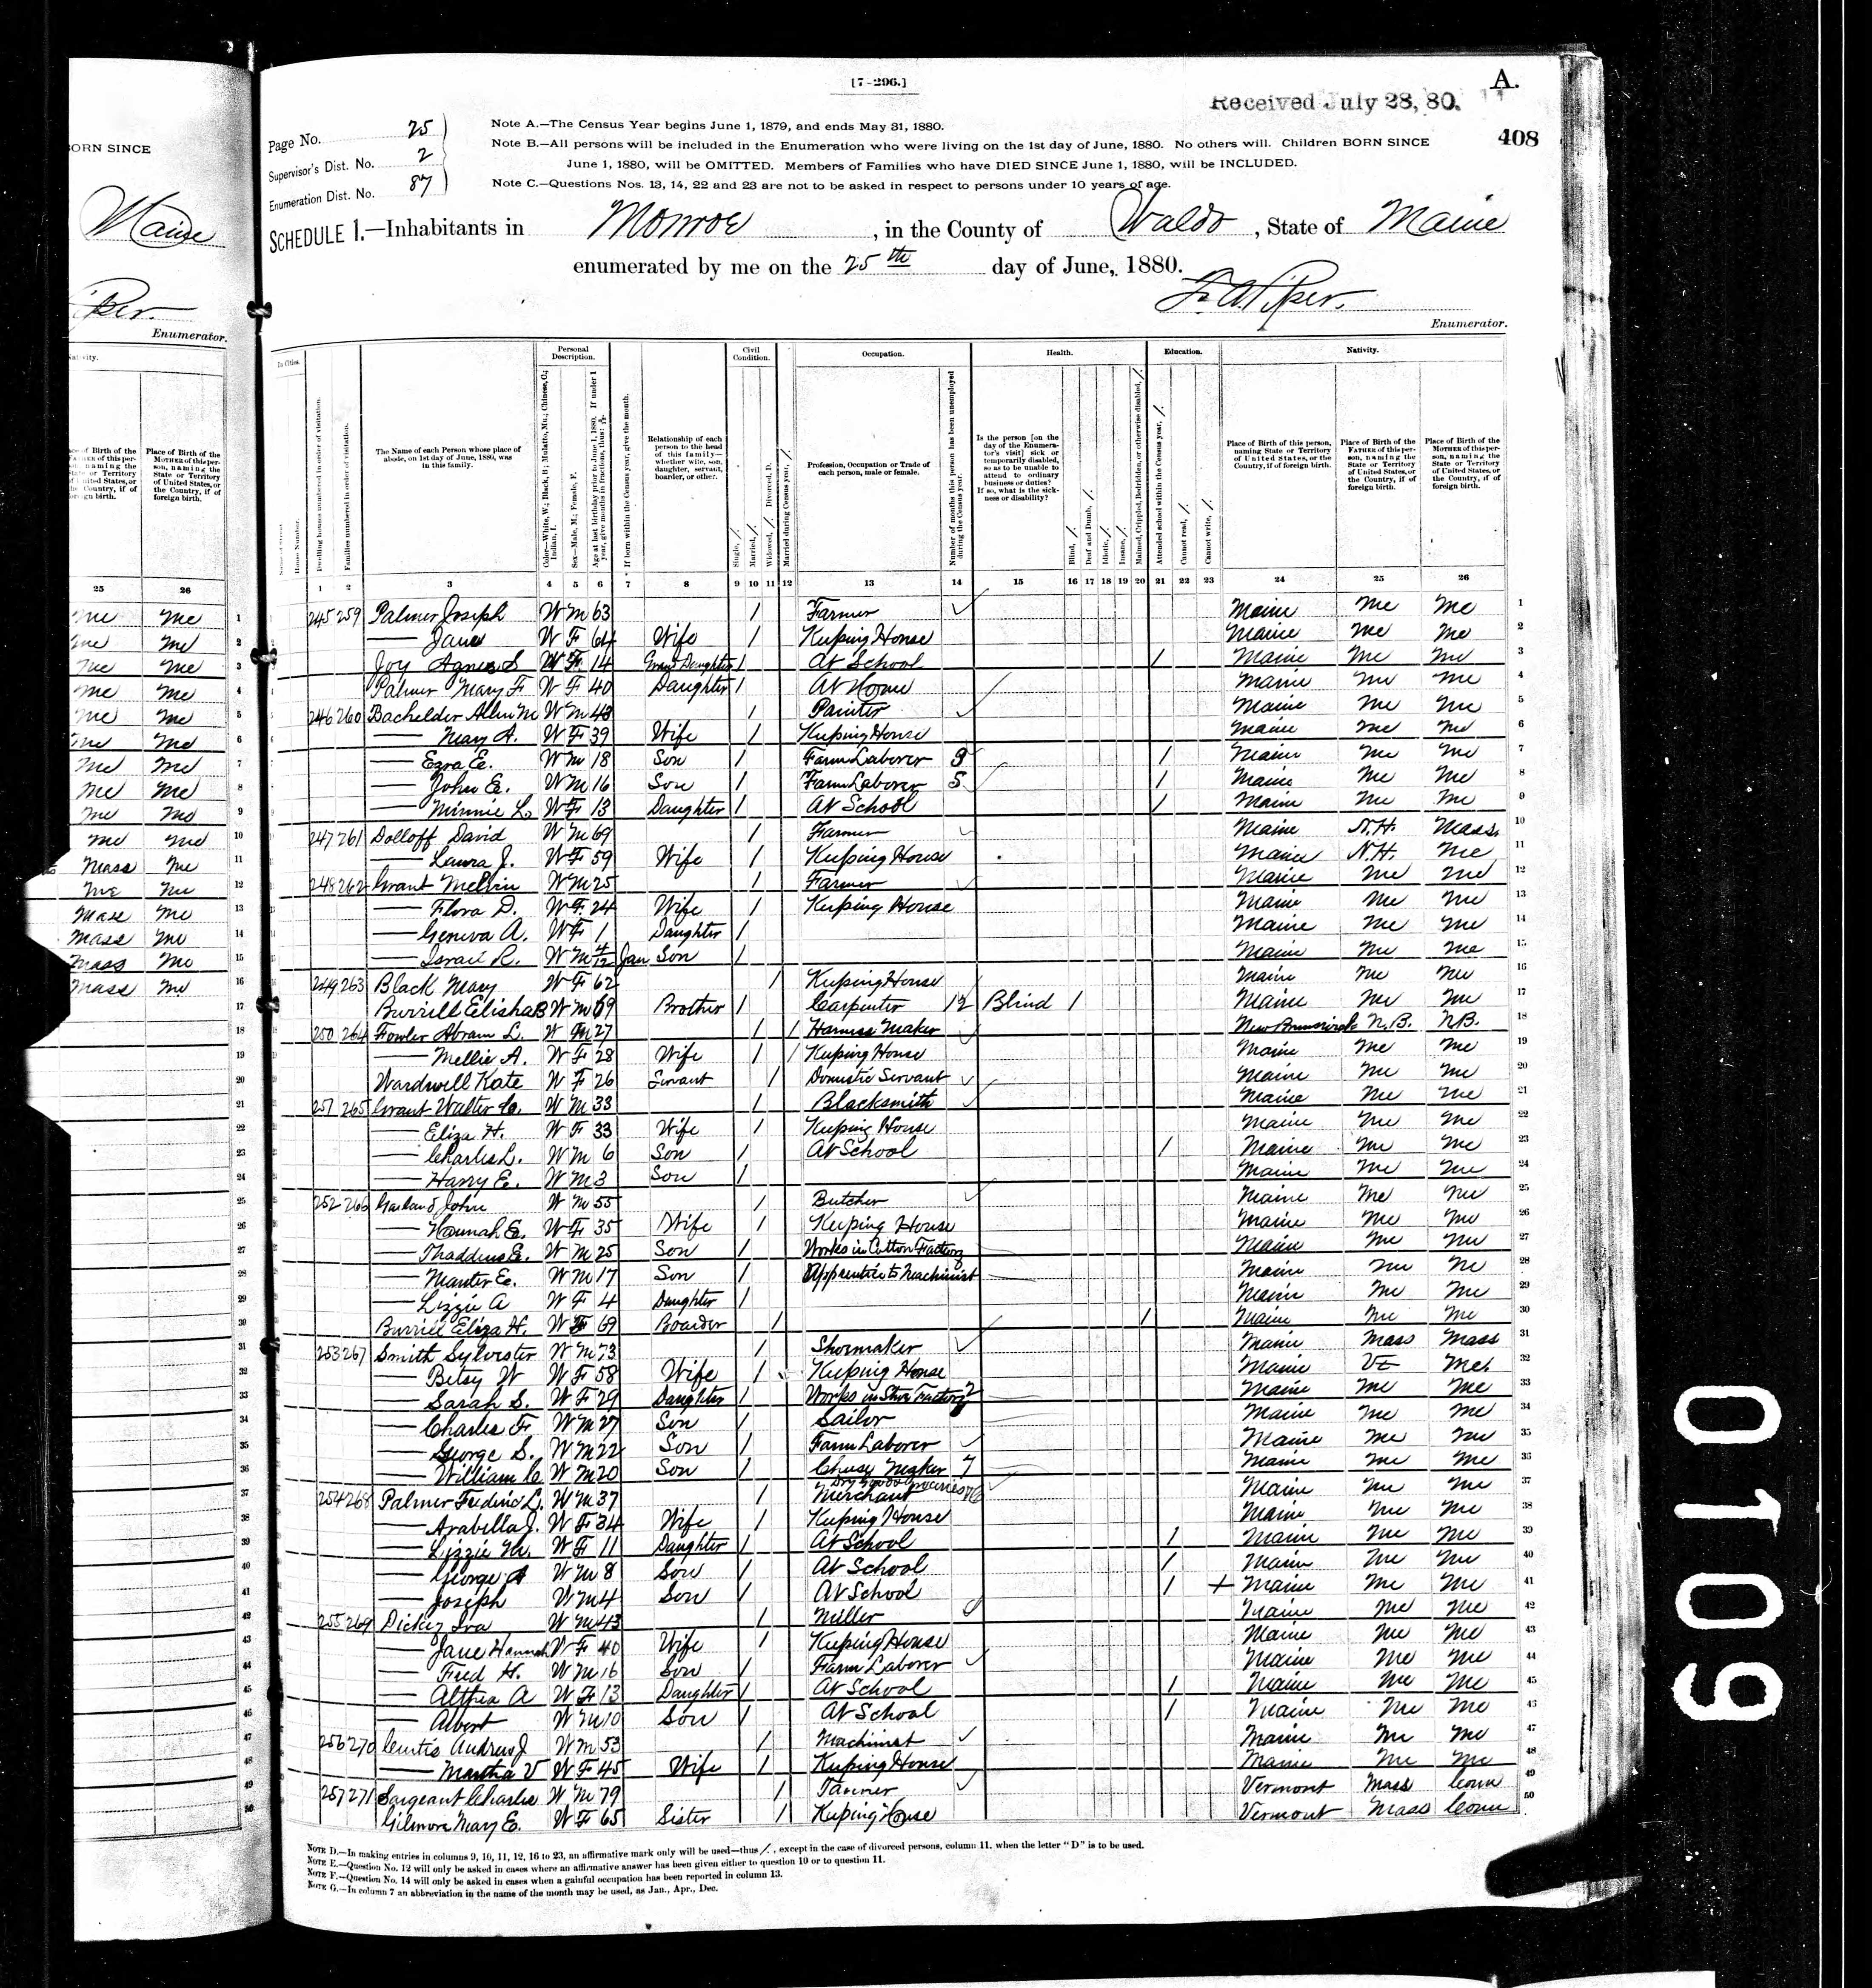 [7-296.]
A.
Received July 28, 80.
408
Page No. 25
Supervisor's Dist. No. 2
Enumeration Dist. No. 87
Note A.—The Census Year begins June 1, 1879, and ends May 31, 1880.
Note B.—All persons will be included in the Enumeration who were living on the 1st day of June, 1880. No others will. Children BORN SINCE
June 1, 1880, will be OMITTED. Members of Families who have DIED SINCE June 1, 1880, will be INCLUDED.
Note C.—Questions Nos. 13, 14, 22 and 23 are not to be asked in respect to persons under 10 years of age.
SCHEDULE 1.—Inhabitants in Monroe, in the County of Waldo, State of Maine
enumerated by me on the 25th day of June, 1880.
Enumerator.
Personal Description. Civil Condition. Occupation. Health. Education. Nativity.
The Name of each Person whose place of abode, on 1st day of June, 1880, was in this family.
Relationship of each person to the head of this family—whether wife, son, daughter, servant, boarder, or other.
Profession, Occupation or Trade of each person, male or female.
Is the person [on the day of the Enumerator's visit] sick or temporarily disabled, so as to be unable to attend to ordinary business or duties? If so, what is the sickness or disability?
Place of Birth of this person, naming State or Territory of United States, or the Country, if of foreign birth.
Place of Birth of the FATHER of this person, naming the State or Territory of United States, or the Country, if of foreign birth.
Place of Birth of the MOTHER of this person, naming the State or Territory of United States, or the Country, if of foreign birth.
1 2 3 4 5 6 7 8 9 10 11 12 13 14 15 16 17 18 19 20 21 22 23 24 25 26
1 245 259 Palmer Joseph W M 63 / Farmer Maine Me Me
2 — Jane W F 64 Wife / Keeping House Maine Me Me
3 Joy Agnes S W F 14 Grand Daughter / At School / Maine Me Me
4 Palmer Mary F W F 40 Daughter / At Home Maine Me Me
5 246 260 Bachelder Allen M W M 48 / Painter Maine Me Me
6 — Mary A. W F 39 Wife / Keeping House Maine Me Me
7 — Ezra E. W M 18 Son / Farm Laborer 9 / Maine Me Me
8 — John E. W M 16 Son / Farm Laborer 5 / Maine Me Me
9 — Minnie L. W F 13 Daughter / At School / Maine Me Me
10 247 261 Dolloff David W M 69 / Farmer Maine N.H. Mass.
11 — Laura J. W F 59 Wife / Keeping House Maine N.H. Me
12 248 262 Grant Melvin W M 25 / Farmer Maine Me Me
13 — Flora D. W F 24 Wife / Keeping House Maine Me Me
14 — Geneva A. W F 1 Daughter / Maine Me Me
15 — Israel R. W M 4/12 Jan Son / Maine Me Me
16 249 263 Black Mary W F 62 / Keeping House Maine Me Me
17 Burrill Elisha B W M 69 Brother / Carpenter 12 Blind 1 Maine Me Me
18 250 264 Fowler Abram L. W M 27 / / Harness Maker New Brunswick N.B. N.B.
19 — Mellie A. W F 28 Wife / / Keeping House Maine Me Me
20 Wardwell Kate W F 26 Servant / Domestic Servant Maine Me Me
21 251 265 Grant Walter W M 33 / Blacksmith Maine Me Me
22 — Eliza H. W F 33 Wife / Keeping House Maine Me Me
23 — Charles L. W M 6 Son / At School / Maine Me Me
24 — Harry E. W M 3 Son / Maine Me Me
25 252 266 Garland John W M 55 / Butcher Maine Me Me
26 — Hannah E. W F 35 Wife / Keeping House Maine Me Me
27 — Thaddeus E. W M 25 Son / Works in Cotton Factory Maine Me Me
28 — Manter E. W M 17 Son / Apprentice to Machinist Maine Me Me
29 — Lizzie A W F 4 Daughter / Maine Me Me
30 Burrill Eliza H. W F 69 Boarder / / Maine Me Me
31 253 267 Smith Sylvester W M 73 / Shoemaker Maine Mass Mass
32 — Betsy W W F 58 Wife / Keeping House Maine Vt Me.
33 — Sarah S. W F 29 Daughter / Works in Shoe Factory 2 Maine Me Me
34 — Charles F W M 27 Son / Sailor Maine Me Me
35 — George S. W M 22 Son / Farm Laborer Maine Me Me
36 — William C. W M 20 Son / Cheese Maker 7 Maine Me Me
37 254 268 Palmer Frederic L. W M 37 / Merchant Dry Goods Groceries Maine Me Me
38 — Arabella J. W F 34 Wife / Keeping House Maine Me Me
39 — Lizzie M. W F 11 Daughter / At School / Maine Me Me
40 — George A W M 8 Son / At School / Maine Me Me
41 — Joseph W M 4 Son / At School / + Maine Me Me
42 255 269 Dickey Ira W M 43 / Miller Maine Me Me
43 — Jane Hannah W F 40 Wife / Keeping House Maine Me Me
44 — Fred H. W M 16 Son / Farm Laborer Maine Me Me
45 — Althea A W F 13 Daughter / At School / Maine Me Me
46 — Albert W M 10 Son / At School / Maine Me Me
47 256 270 Curtis Andrew J W M 53 / Machinist Maine Me Me
48 — Martha V W F 45 Wife / Keeping House Maine Me Me
49 257 271 Sargeant Charles W M 79 / Vermont Mass Conn
50 Gilmore Mary E. W F 65 Sister / Keeping House Vermont Mass Conn
Note D.—In making entries in columns 9, 10, 11, 12, 16 to 23, an affirmative mark only will be used—thus /, except in the case of divorced persons, column 11, when the letter "D" is to be used.
Note E.—Question No. 12 will only be asked in cases where an affirmative answer has been given either to question 10 or to question 11.
Note F.—Question No. 14 will only be asked in cases when a gainful occupation has been reported in column 13.
Note G.—In column 7 an abbreviation in the name of the month may be used, as Jan., Apr., Dec.
0109